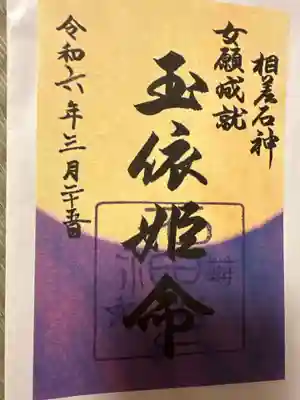 相差石神
女願成就
玉依姫命
令和六年三月二十五日